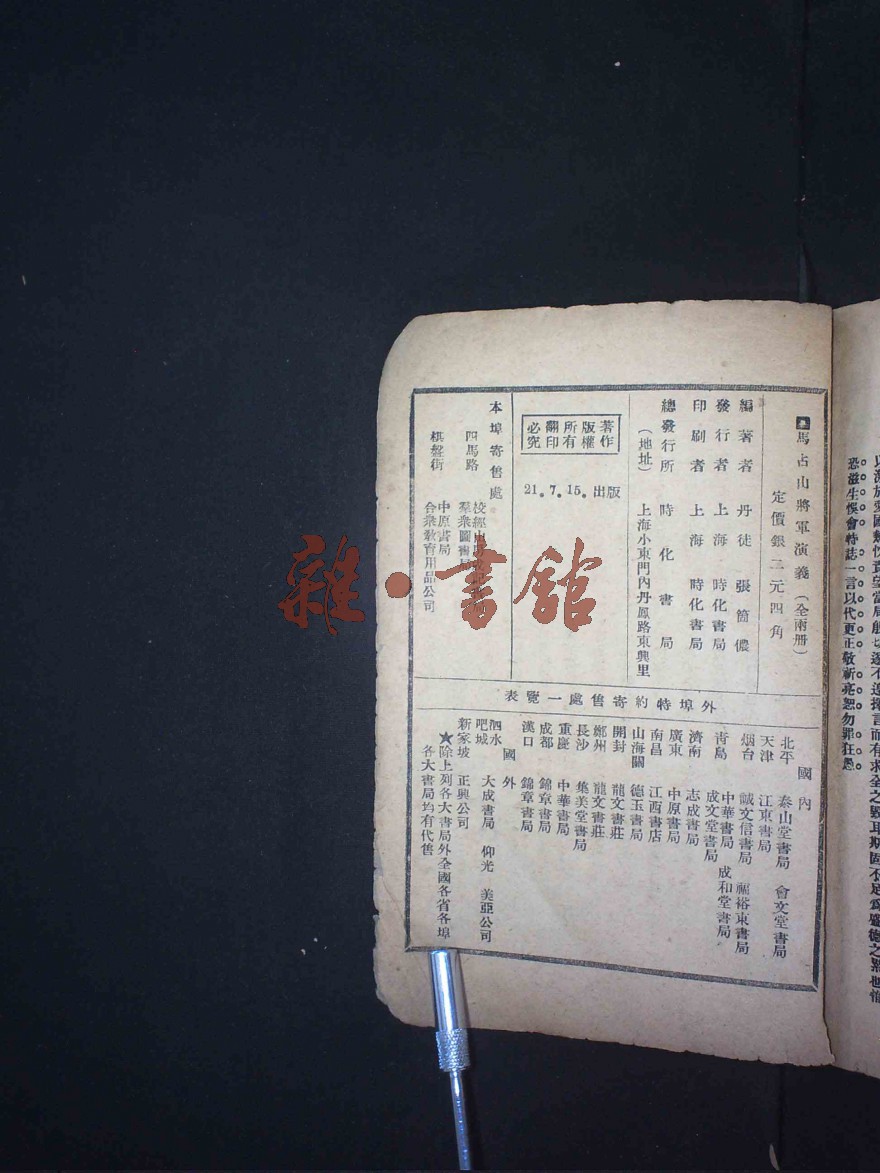 馬占山將軍演義(全兩冊)
定價銀二元四角
編著者 丹徒 張箇儂
發行者 上海 時化書局
印刷者 上海 時化書局
總發行所 時化書局
(地址) 上海小東門內丹鳳路東興里
著作版權所有翻印必究
21.7.15.出版
本埠寄售處
四馬路
羣衆圖書
棋盤街
中原書局
合衆教育用品公司
外埠特約寄售處一覽表
國內
北平 泰山堂書局 會文堂書局
天津 江東書局
烟台 誠文信書局 福裕東書局
青島 中華書局 成和堂書局
成文堂書局
濟南 志成書局
廣東 中原書局
南昌 江西書店
山海關 德玉書局
開封 龍文書莊
鄭州 龍文書莊
長沙 集美堂書局
重慶 中華書局
成都 錦章書局
漢口 錦章書局
國外
泗水
吧城 大成書局 仰光 美亞公司
新家坡 正興公司
★除上列各大書局外全國各省各埠
各大書局均有代售
雜·書舘
恐滋生悞會特誌一言以代更正敬祈亮恕勿罪狂愚